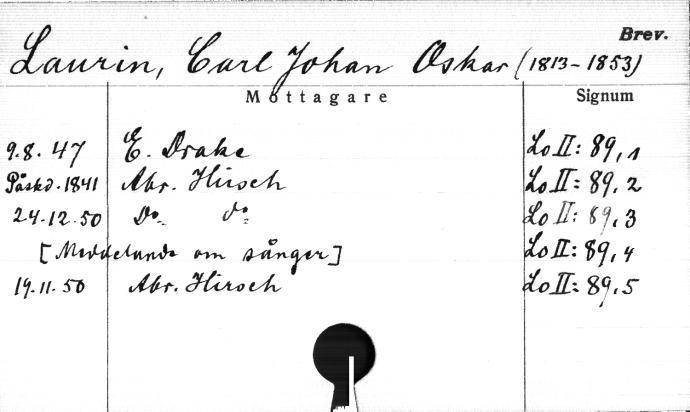 Brev.
Laurin, Carl Johan Oskar (1813-1853)
Mottagare Signum
9.8.47 E. Drake Lo II: 89,1
Påskd.1841 Abr. Hirsch Lo II: 89,2
24.12.50 Do. do: Lo II: 89,3
[Meddelande om sånger] Lo II: 89,4
19.11.50 Abr. Hirsch Lo II: 89,5